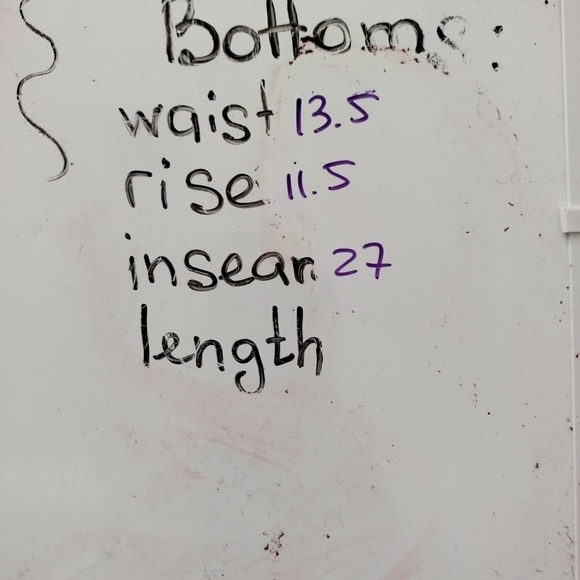 Bottoms:
waist 13.5
rise 11.5
inseam 27
length